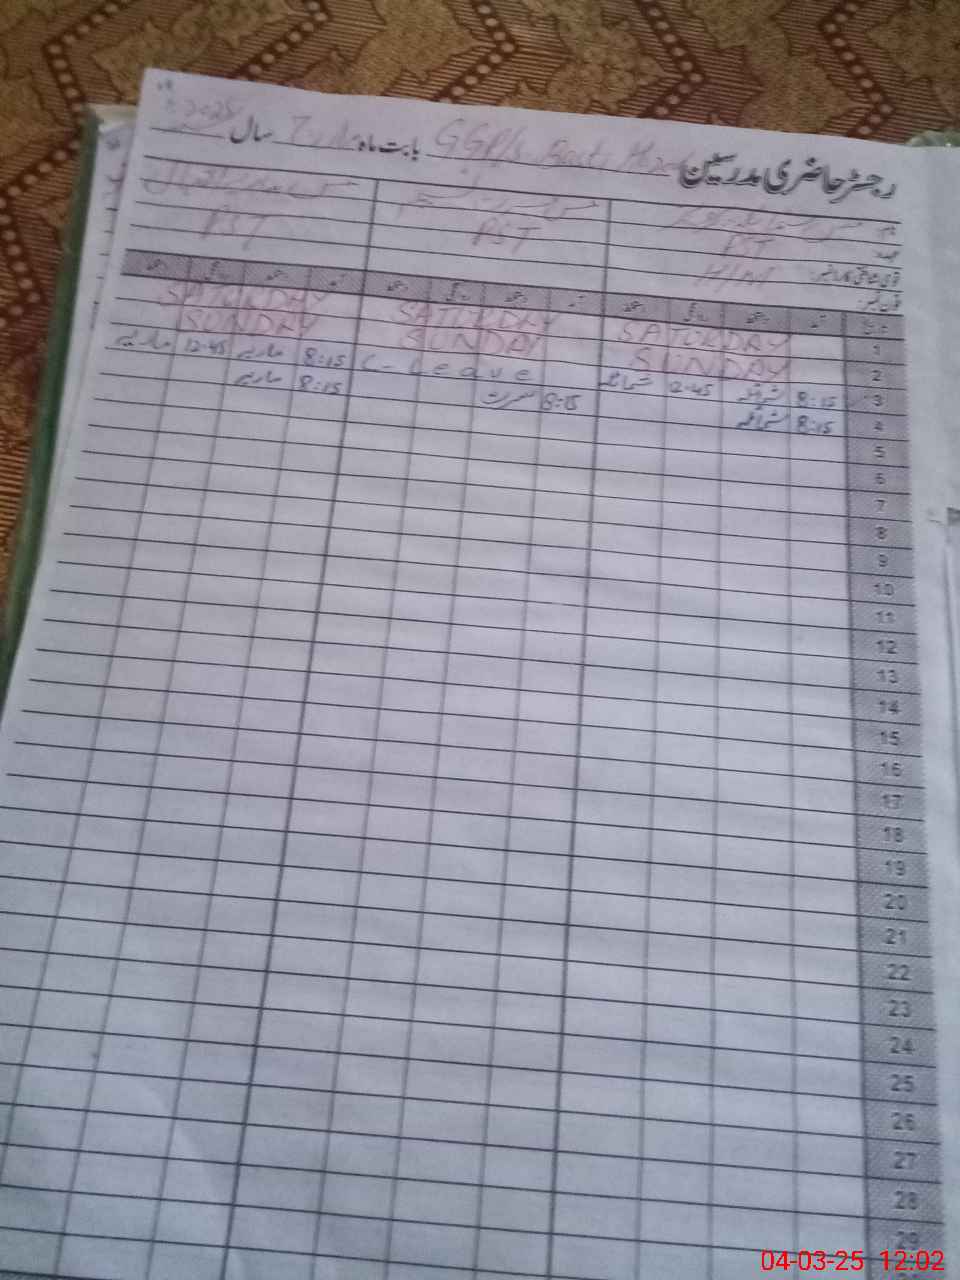 رجسٹر حاضری مدرسین GGP/s بابت ماہ سال 2025
نام
عہدہ PST PST PST
قومی شناختی کارڈ نمبر: H/M
فون نمبر:
1 SATURDAY SATURDAY SATURDAY
2 SUNDAY SUNDAY SUNDAY
3 8:15 شمائلہ 12-45 شمائلہ C-Leave 8:15 ماریہ 12-45 ماریہ
4 8:15 شمائلہ 8:15 مسرت 8:15 ماریہ
5
6
7
8
9
10
11
12
13
14
15
16
17
18
19
20
21
22
23
24
25
26
27
28
29
04-03-25 12:02